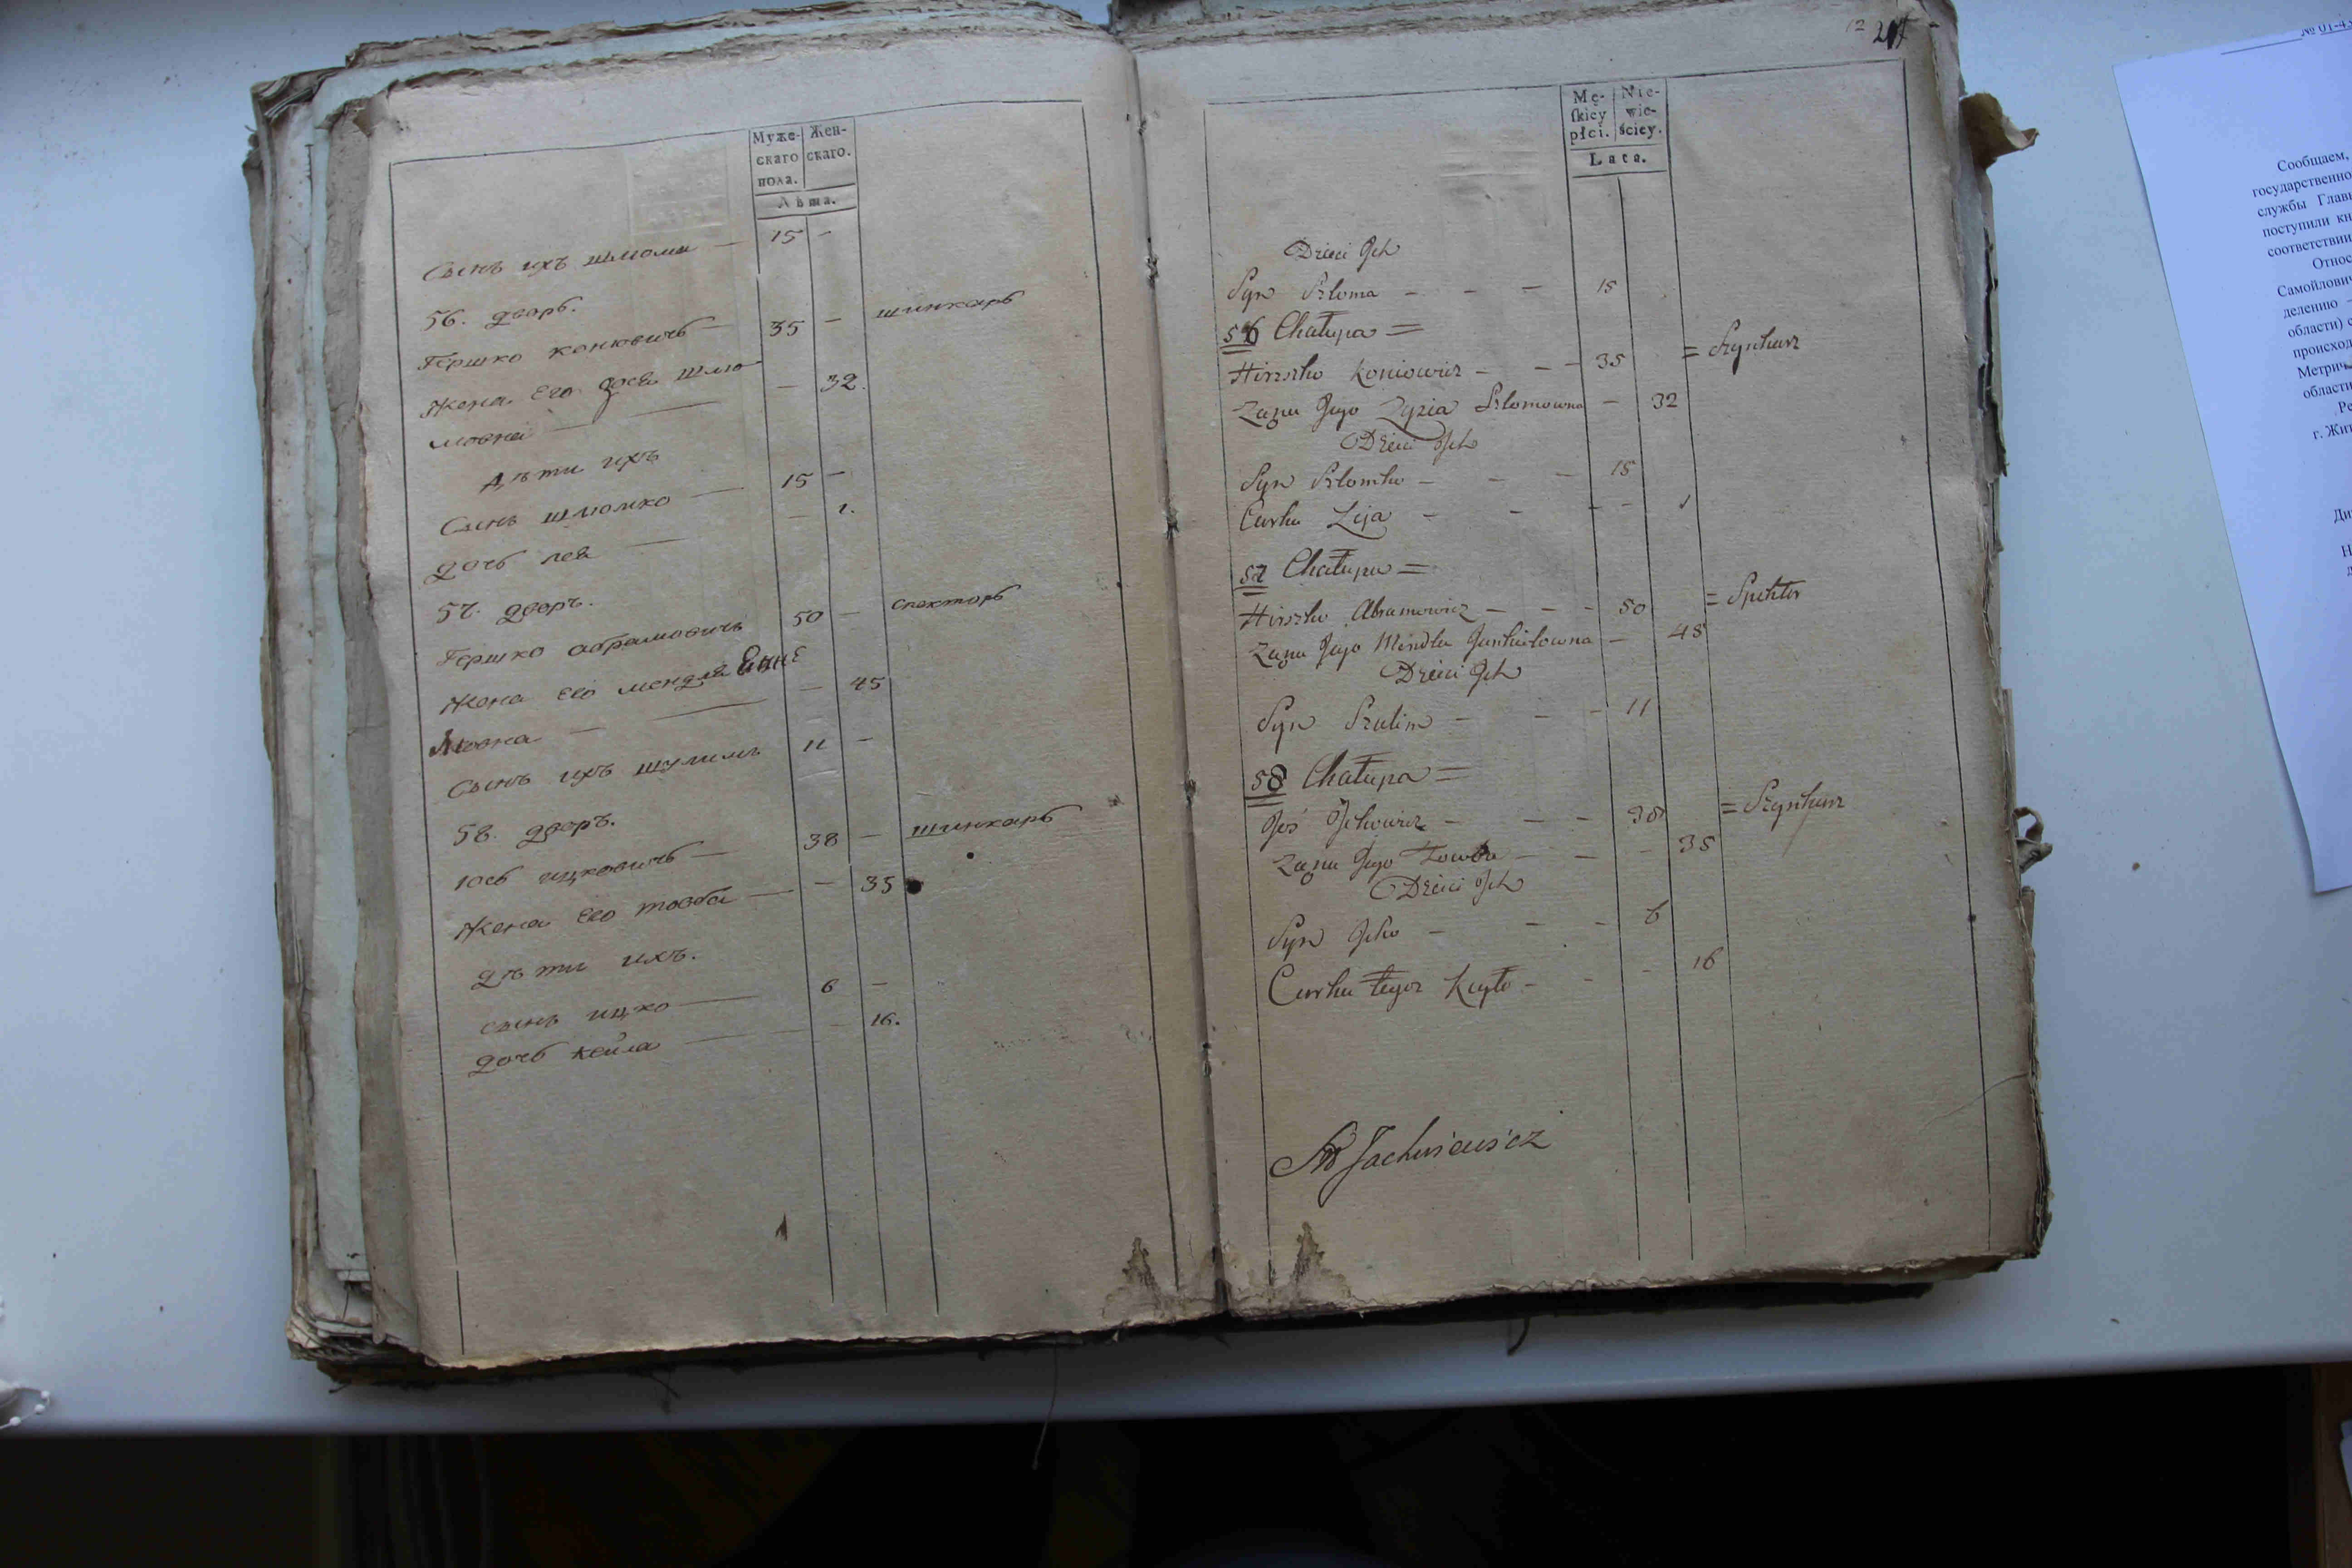 Муже- Жен-
скаго скаго.
пола.
Лѣта.
Сынъ ихъ шлиома — 15 —
56. дворъ.
Гершко конювичъ — 35 — шинкарь
Жена Его зося шлио — 32.
мовна —
Дѣти ихъ
Сынъ шлиомко — 15 —
дочь лея — — 1.
57. дворъ.
Гершко абрамовичъ 50 — спекторъ
Жена Его мендля
— 45
мовна —
Сынъ ихъ шулимъ 11 —
58. дворъ.
Юсь ицковичъ — 38 — шинкарь
Жена Его товба — — 35
дѣти ихъ.
сынъ ицко — 6 —
дочь кейла — — 16.
Mę- Nie-
ſkiey wie-
płci. ściey.
Lata.
Dzieci Ich
Syn Szloma — — — 15
56 Chałupa =
Hirszko Koniowicz — — — 35 = Szynkarz
Żona Jego Zyzia Szlomowna — 32
Dzieci Ich
Syn Szlomko — — — 15
Curka Leja — — — — 1
57 Chałupa =
Hirszko Abramowicz — — — 50 = Spektor
Żona Jego Mindla Jankielowna — 48
Dzieci Ich
Syn Szulim — — — 11
58 Chałupa =
Joś Ickowicz — — — 38 = Szynkarz
Żona Jego Towba — — — 35
Dzieci Ich
Syn Icko — — — 6
Curka Kayło — — — 16
Jachniewicz
Сообщаем,
государственно
службы Глав
поступили кн
соответстви
Относ
Самойлович
делению –
области) с
происход
Метрич
област
г. Жит